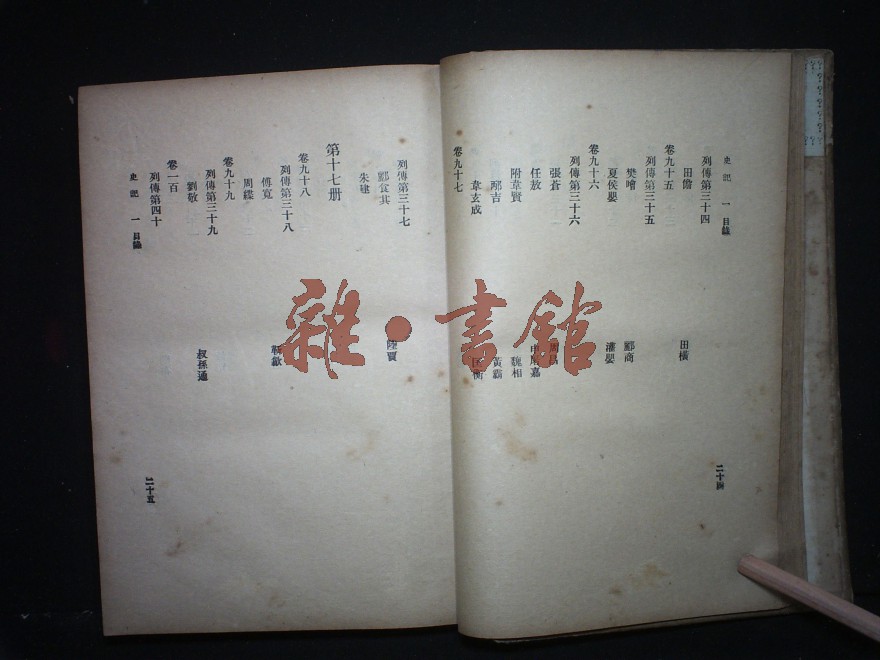 史記 一 目錄
列傳第三十四
田儋 田橫
卷九十五
列傳第三十五
樊噲 酈商
夏侯嬰 灌嬰
卷九十六
列傳第三十六
張蒼 周昌
任敖 申屠嘉
附韋賢 魏相
邴吉 黃霸
韋玄成 匡衡
卷九十七
二十四
列傳第三十七
酈食其 陸賈
朱建
第十七册
卷九十八
列傳第三十八
傅寬 靳歙
周緤
卷九十九
列傳第三十九
劉敬 叔孫通
卷一百
列傳第四十
史記 一 目錄
二十五
雜·書館